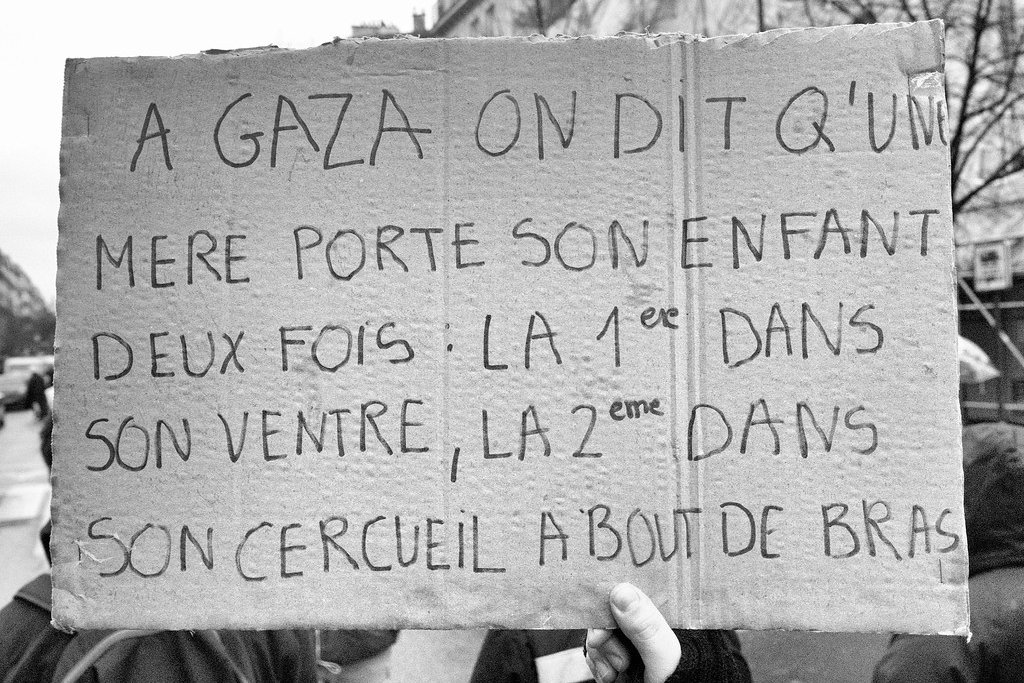 A GAZA ON DIT QU'UNE
MERE PORTE SON ENFANT
DEUX FOIS : LA 1ere DANS
SON VENTRE, LA 2eme DANS
SON CERCUEIL A BOUT DE BRAS